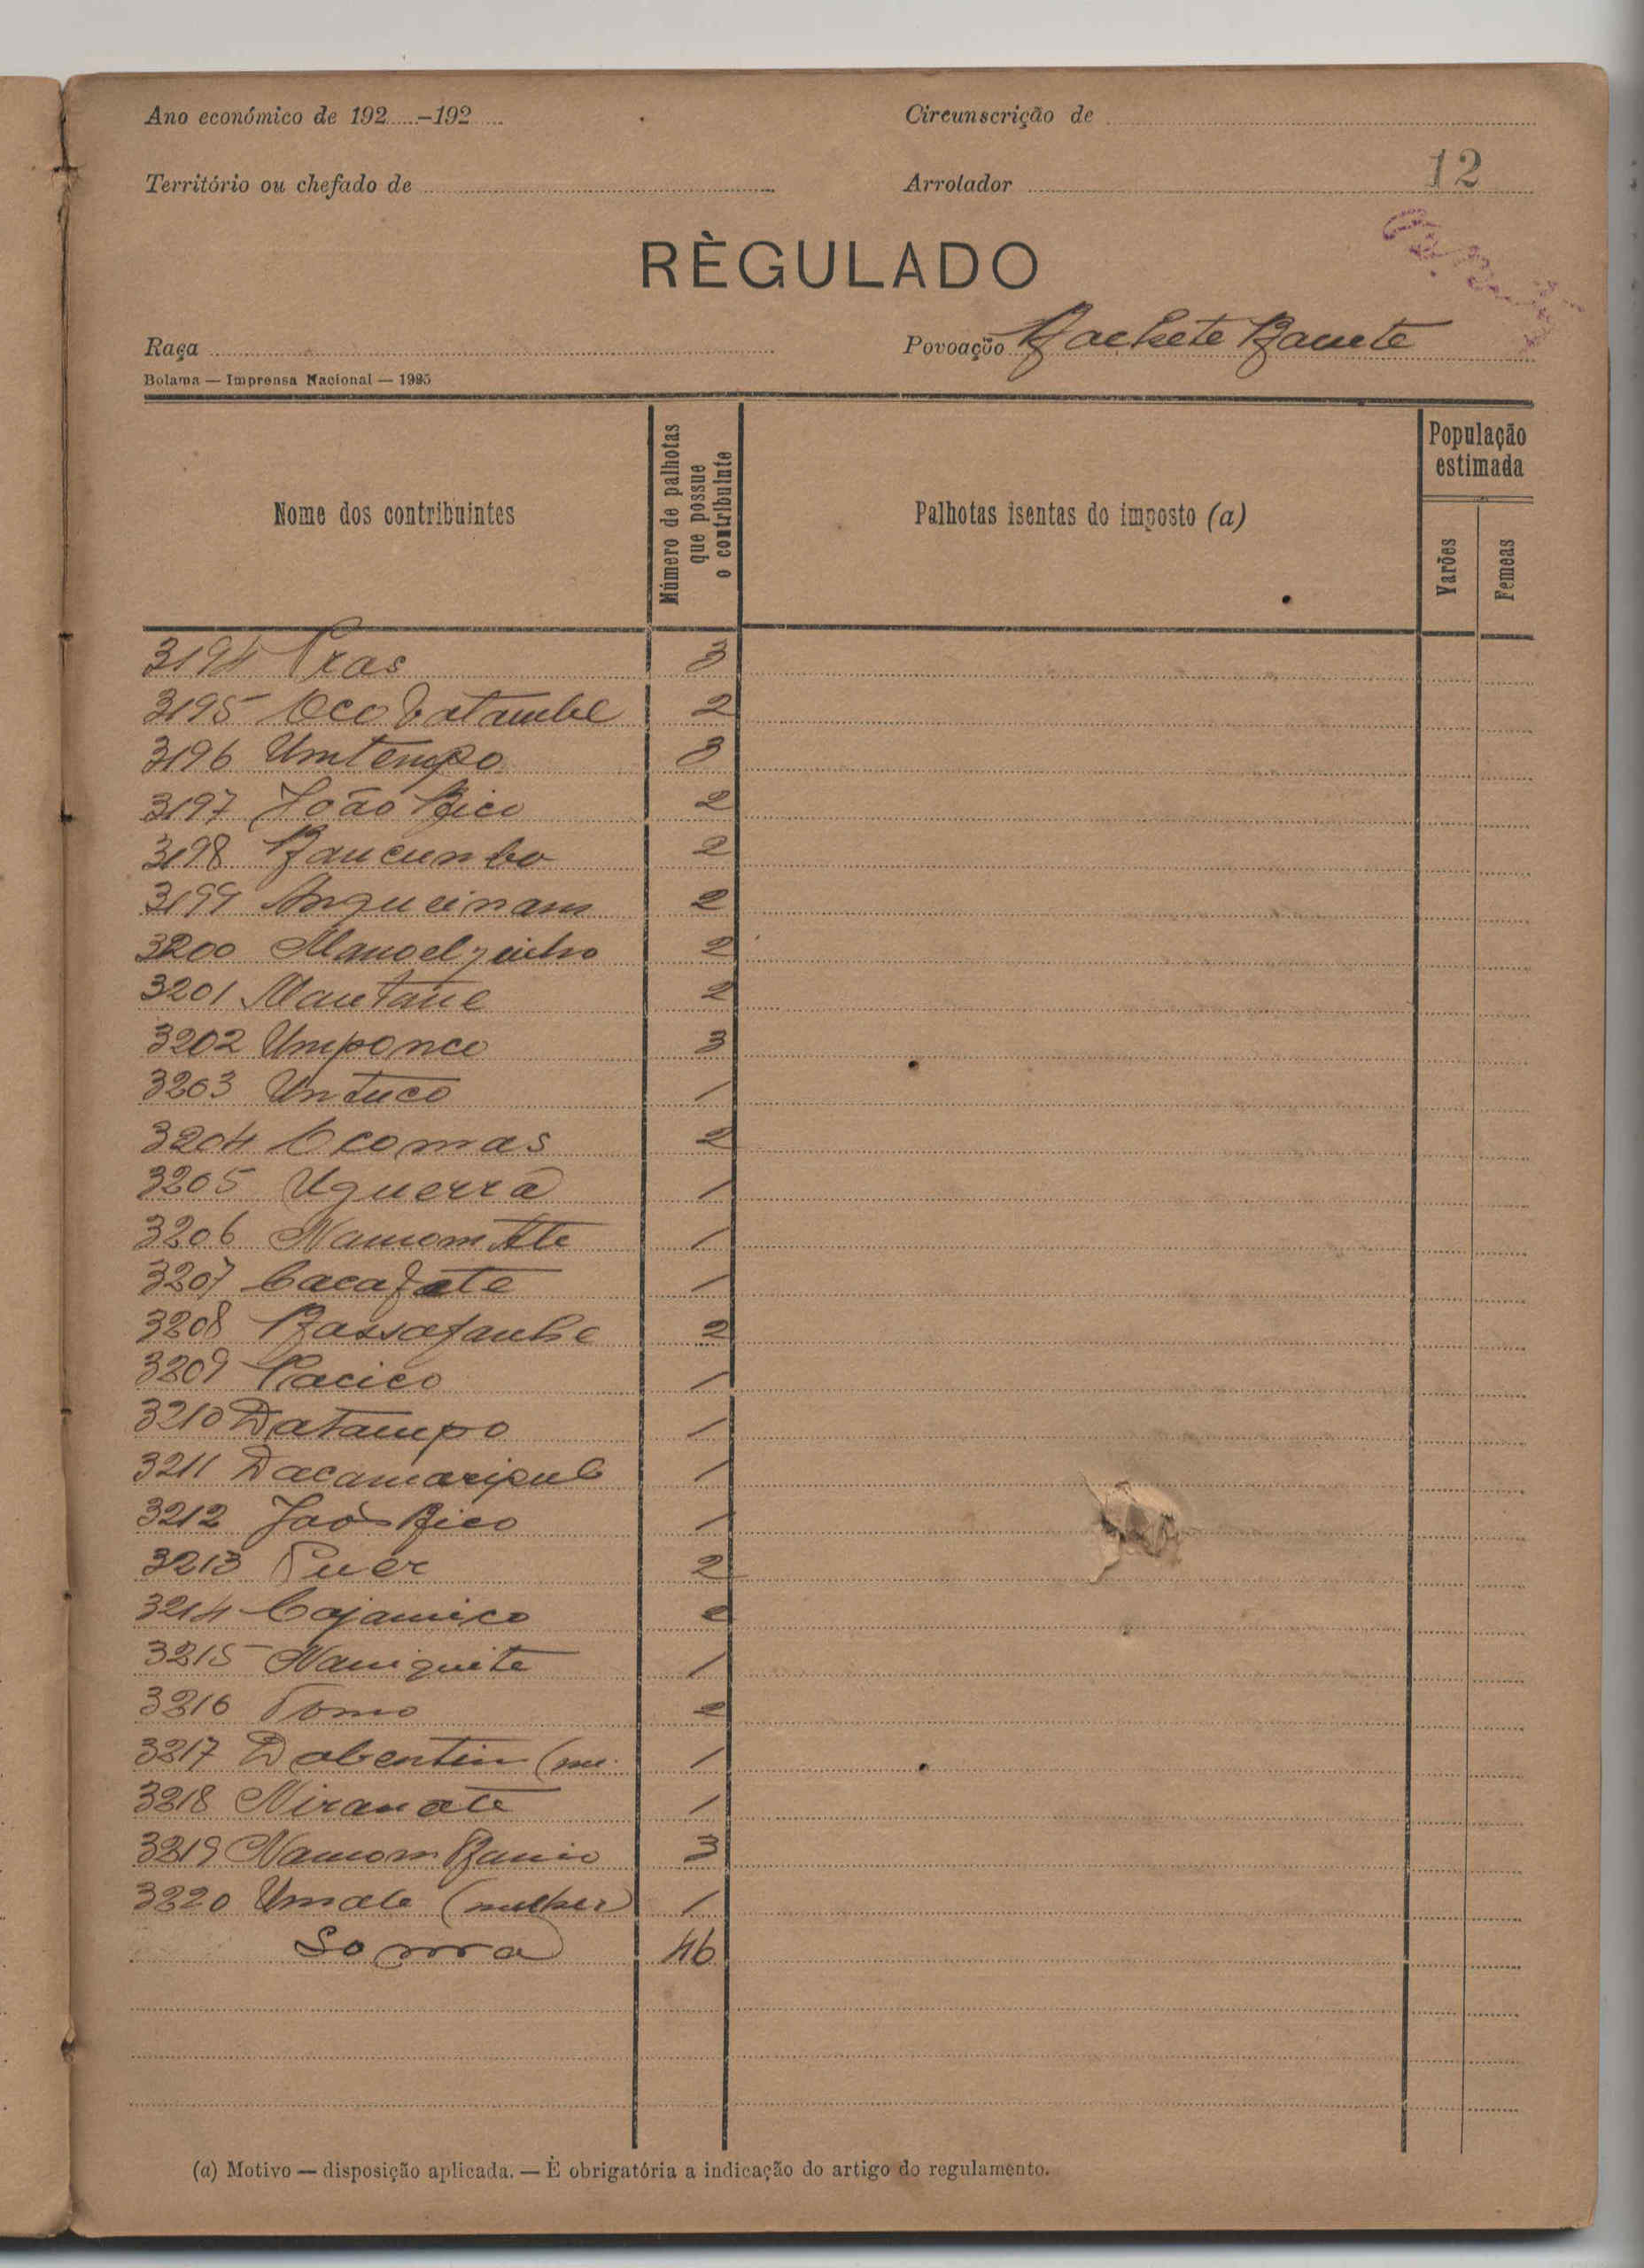 Ano económico de 192.....-192.....
Circunscrição de
Território ou chefado de
Arrolador
12
RÈGULADO
Raça
Povoação
Bolama — Imprensa Nacional — 1925
Nome dos contribuintes
Número de palhotas que possue o contribuinte
Palhotas isentas do imposto (a)
População estimada
Varões
Femeas
3194 3
3195 2
3196 Umtempo 3
3197 João Bico 2
3198 Baucumbo 2
3199 2
3200 Manoelzinho 2
3201 2
3202 Umponco 3
3203 Untuco 1
3204 Ocomas 2
3205 Uguerra 1
3206 1
3207 1
3208 2
3209 Pacico 1
3210 Datampo 1
3211 1
3212 João Bico 1
3213 Puer 2
3214 Cajamico 2
3215 Naniquite 1
3216 Tomo 2
3217 Dabentim (mu. 1
3218 1
3219 3
3220 Umale (mulher) 1
Soma 46
(a) Motivo — disposição aplicada. — É obrigatória a indicação do artigo do regulamento.